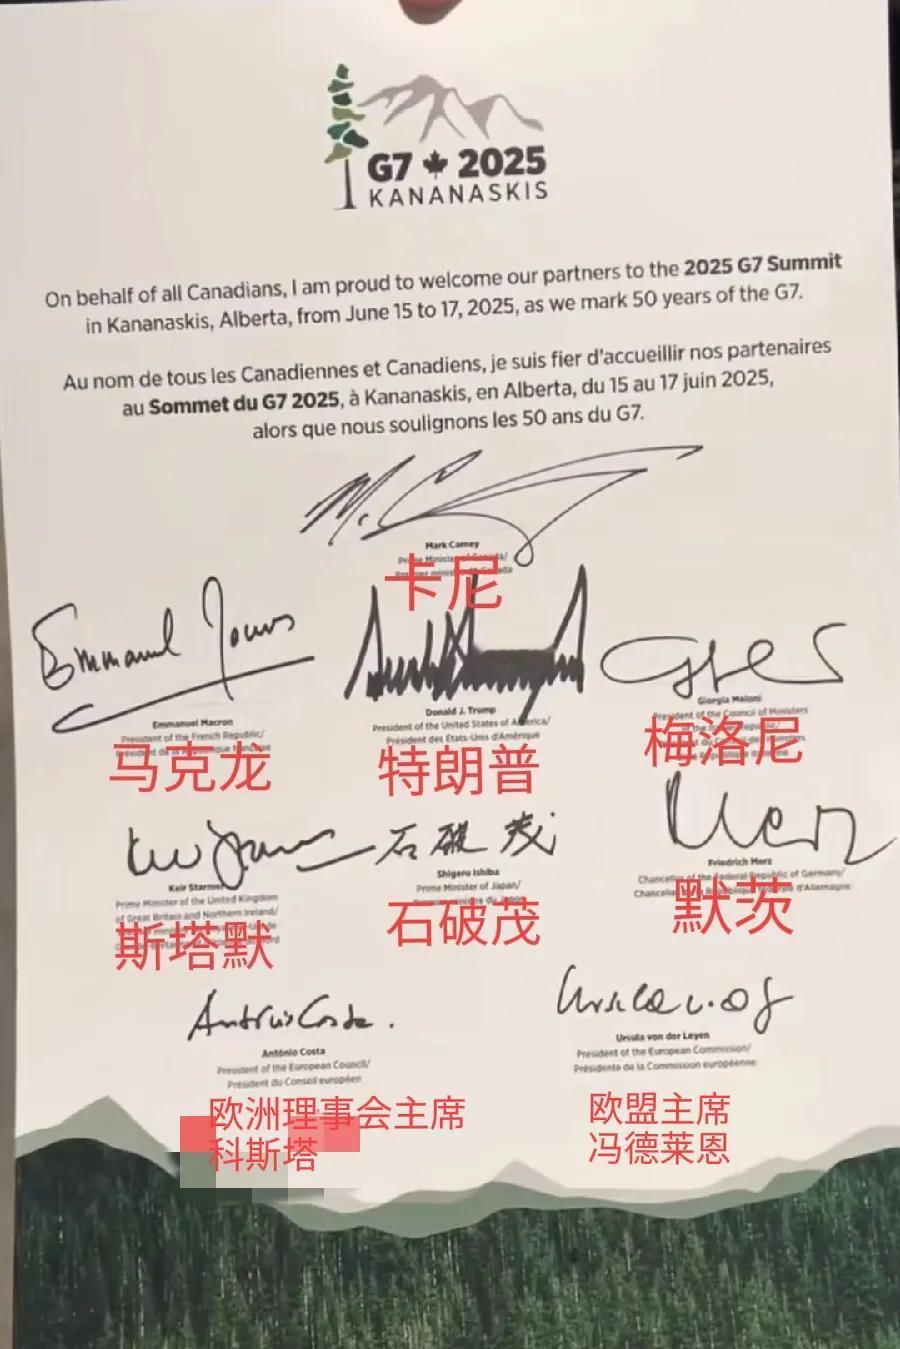 G7 2025
KANANASKIS
On behalf of all Canadians, I am proud to welcome our partners to the 2025 G7 Summit
in Kananaskis, Alberta, from June 15 to 17, 2025, as we mark 50 years of the G7.
Au nom de tous les Canadiennes et Canadiens, je suis fier d'accueillir nos partenaires
au Sommet du G7 2025, à Kananaskis, en Alberta, du 15 au 17 juin 2025,
alors que nous soulignons les 50 ans du G7.
M. C
Mark Carney
Prime Minister of Canada/
卡尼
Emmanuel
Emmanuel Macron
President of the French Republic/
马克龙
Donald J. Trump
President of the United States of America/
Président des États-Unis d'Amérique
特朗普
Giorgia Meloni
President of the Council of Ministers
梅洛尼
Keir Starmer
Prime Minister of the United Kingdom
of Great Britain and Northern Ireland/
斯塔默
石破茂
Shigeru Ishiba
Prime Minister of Japan/
石破茂
Merz
Friedrich Merz
Chancellor of the Federal Republic of Germany/
默茨
António Costa.
António Costa
President of the European Council/
Président du Conseil européen
欧洲理事会主席
科斯塔
Ursula von der Leyen
President of the European Commission/
Présidente de la Commission européenne
欧盟主席
冯德莱恩